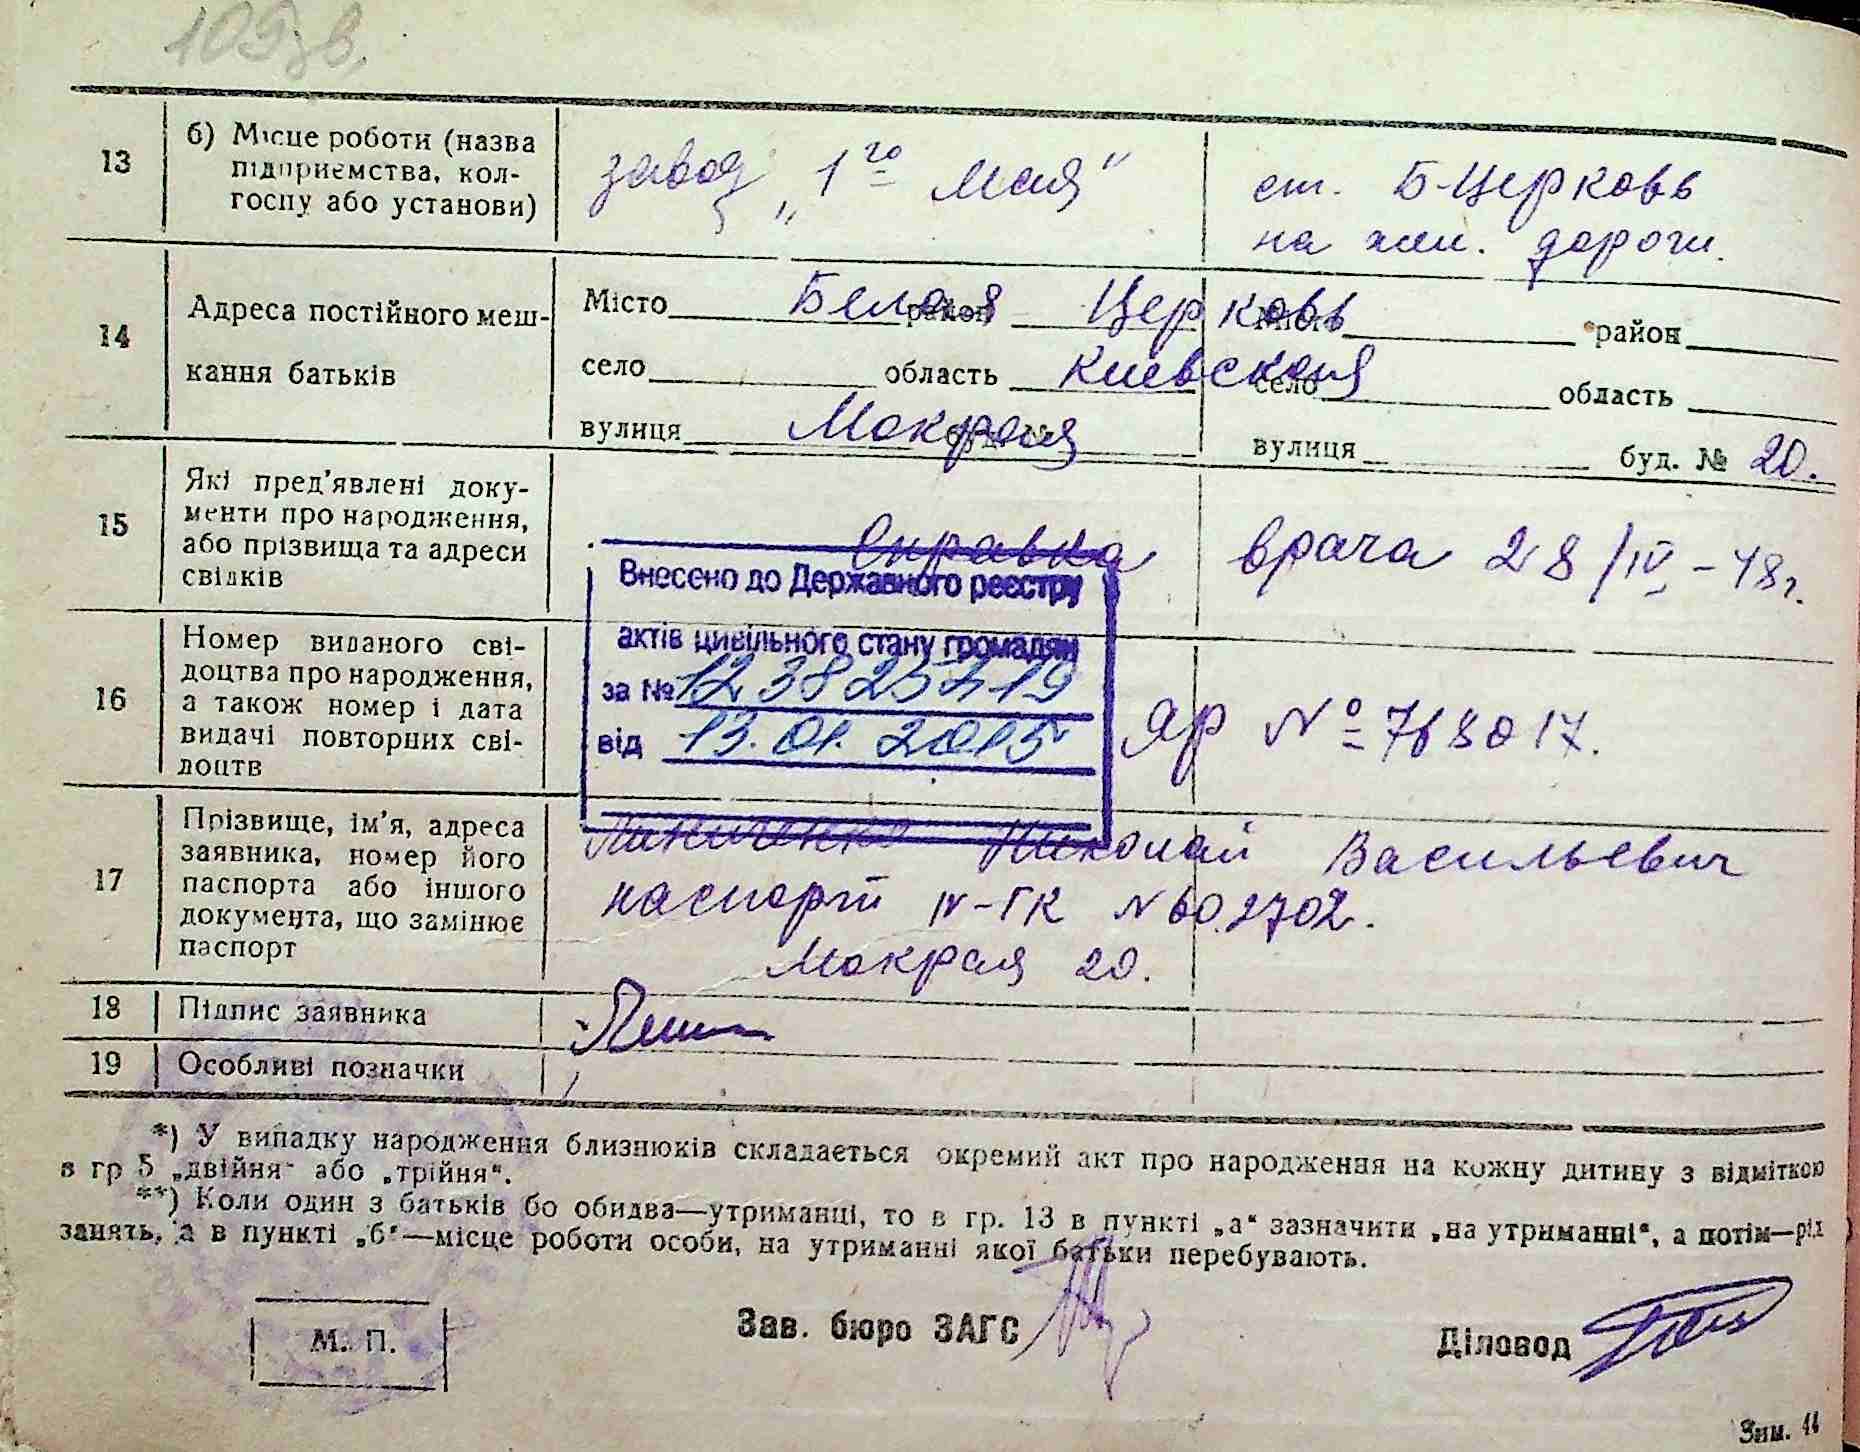 109зв.
13 б) Місце роботи (назва підприємства, колгоспу або установи)
завод „1го Мая"
ст. Б-Церковь
на жел. дороги.
14 Адреса постійного мешкання батьків
Місто Белая район Церковь
місто район
село область Киевская
село область
вулиця Мокрая буд. №
вулиця буд. № 20.
15 Які пред'явлені документи про народження, або прізвища та адреси свідків
Справка врача 28/IV-48г.
Внесено до Державного реєстру
актів цивільного стану громадян
за № 123825419
від 13.01.2015
16 Номер виданого свідоцтва про народження, а також номер і дата видачі повторних свідоцтв
ЯР № 768017.
17 Прізвище, ім'я, адреса заявника, номер його паспорта або іншого документа, що замінює паспорт
Николай Васильевич
паспорт IV-ГК № 602702.
Мокрая 20.
18 Підпис заявника
19 Особливі позначки
*) У випадку народження близнюків складається окремий акт про народження на кожну дитину з відміткою
в гр 5 „двійня" або „трійня".
**) Коли один з батьків бо обидва—утриманці, то в гр. 13 в пункті „а" зазначити „на утриманні", а потім—рід
занять, а в пункті „б"—місце роботи особи, на утриманні якої батьки перебувають.
М. П.
Зав. бюро ЗАГС
Діловод
Зим. 44